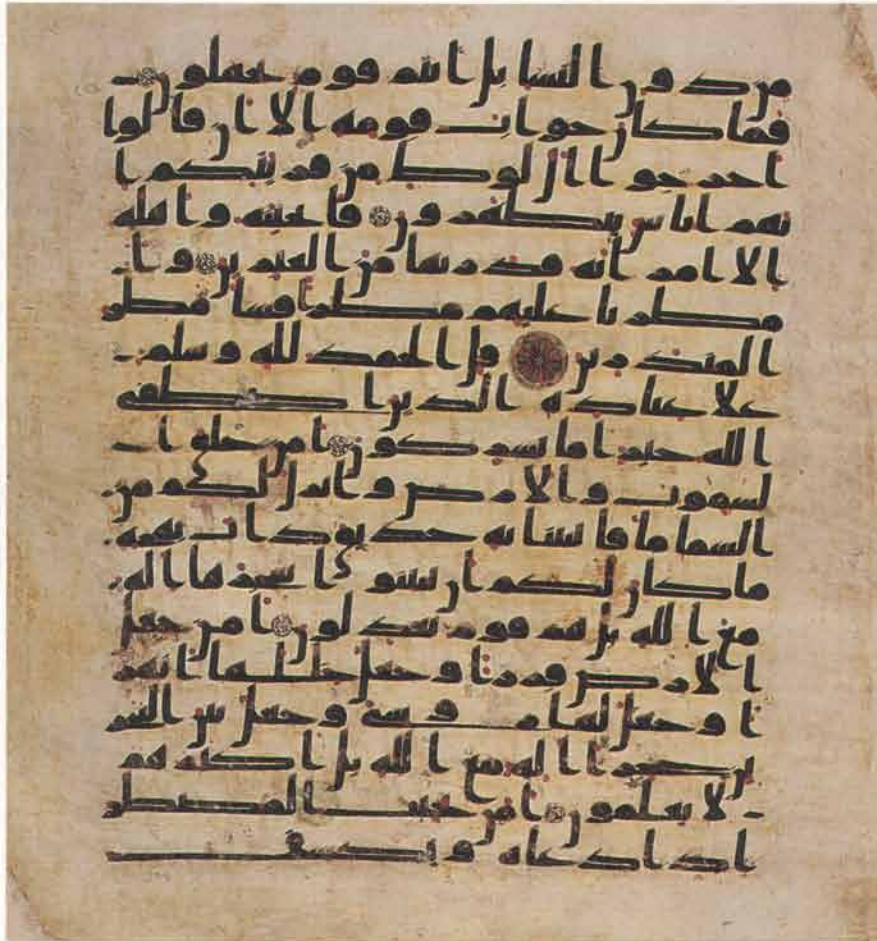 من دون النسا بل انتم قوم تجهلون
فما كان جواب قومه الا ان قالوا
اخرجوا ال لوط من قريتكم ا
نهم اناس يتطهرون فانجينه واهله
الا امراته قدرنها من الغبرين وا
مطرنا عليهم مطرا فسا مطر
المنذرين قل الحمد لله وسلم
على عباده الذين اصطفى
الله خير اما يشركون امن خلق ا
لسموت والارض وانزل لكم من
السما ما فانبتنا به حدايق ذات بهجة
ما كان لكم ان تنبتوا شجرها اله
مع الله بل هم قوم يعدلون امن جعل
الارض قرارا وجعل خللها انهر
ا وجعل لها روسي وجعل بين البحر
ين حاجزا اله مع الله بل اكثرهم
لا يعلمون امن يجيب المضطر
اذا دعاه ويكشف